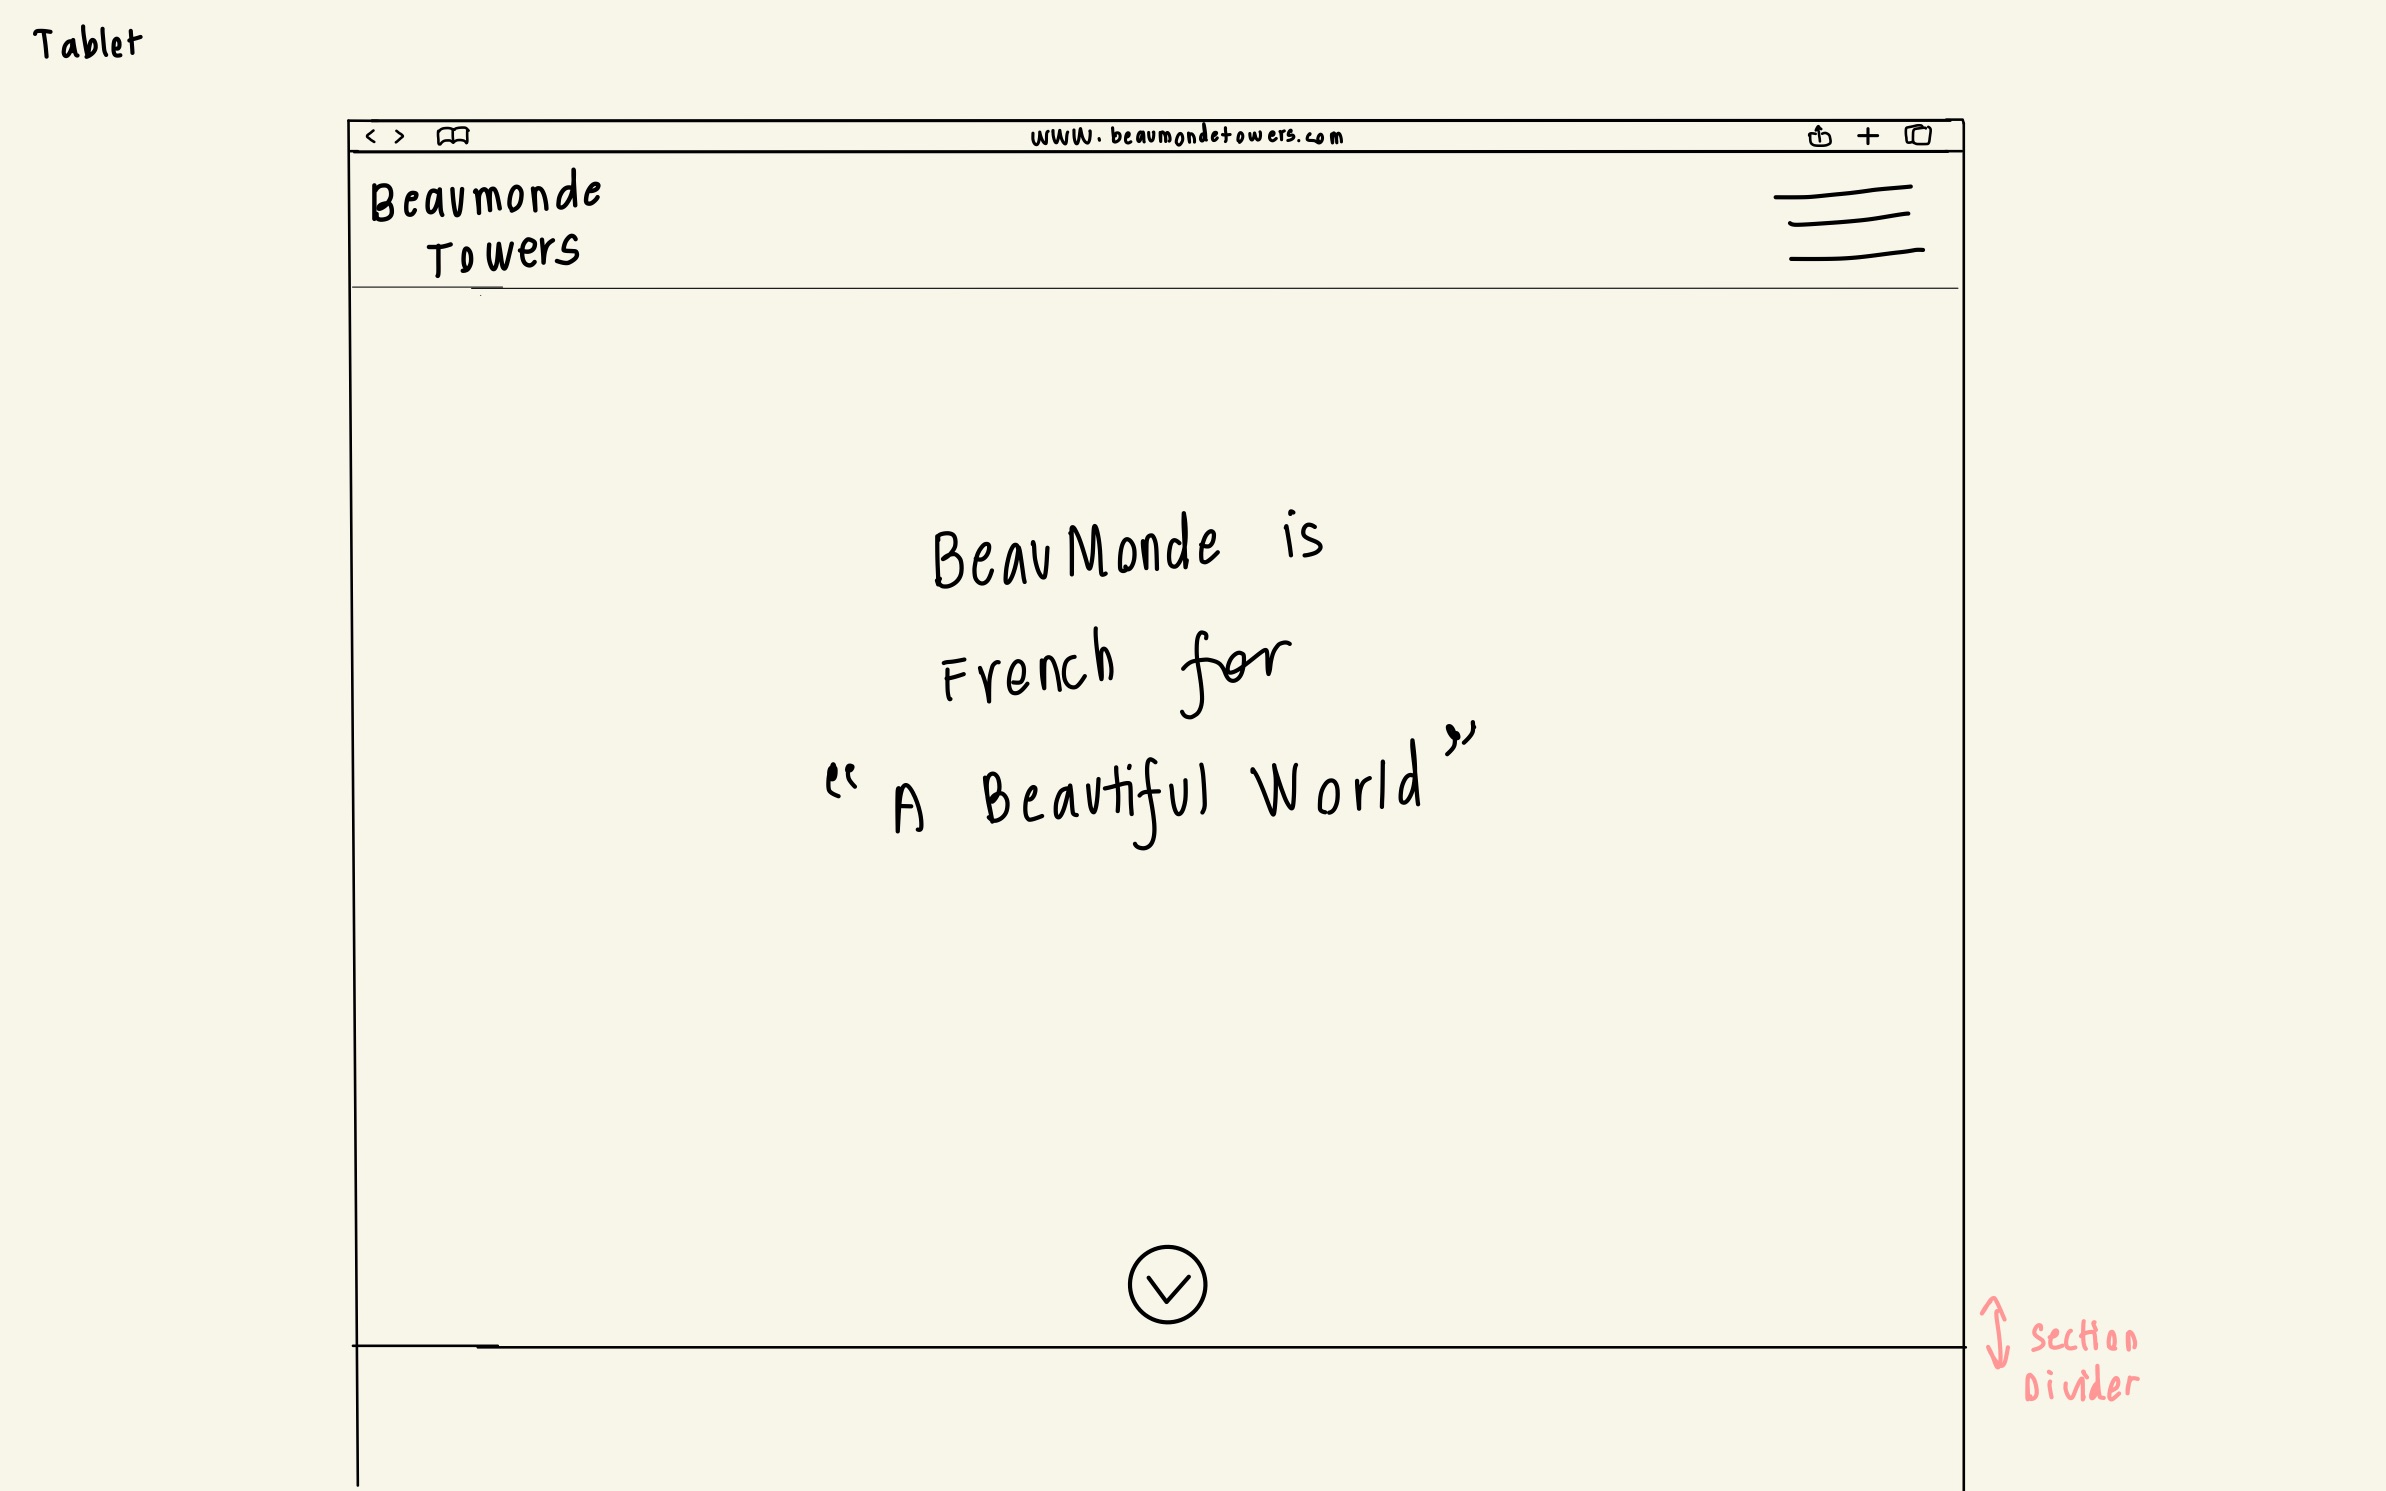 Tablet
www.beaumondetowers.com
Beaumonde
Towers
BeauMonde is
French for
“A Beautiful World”
Section
Divider